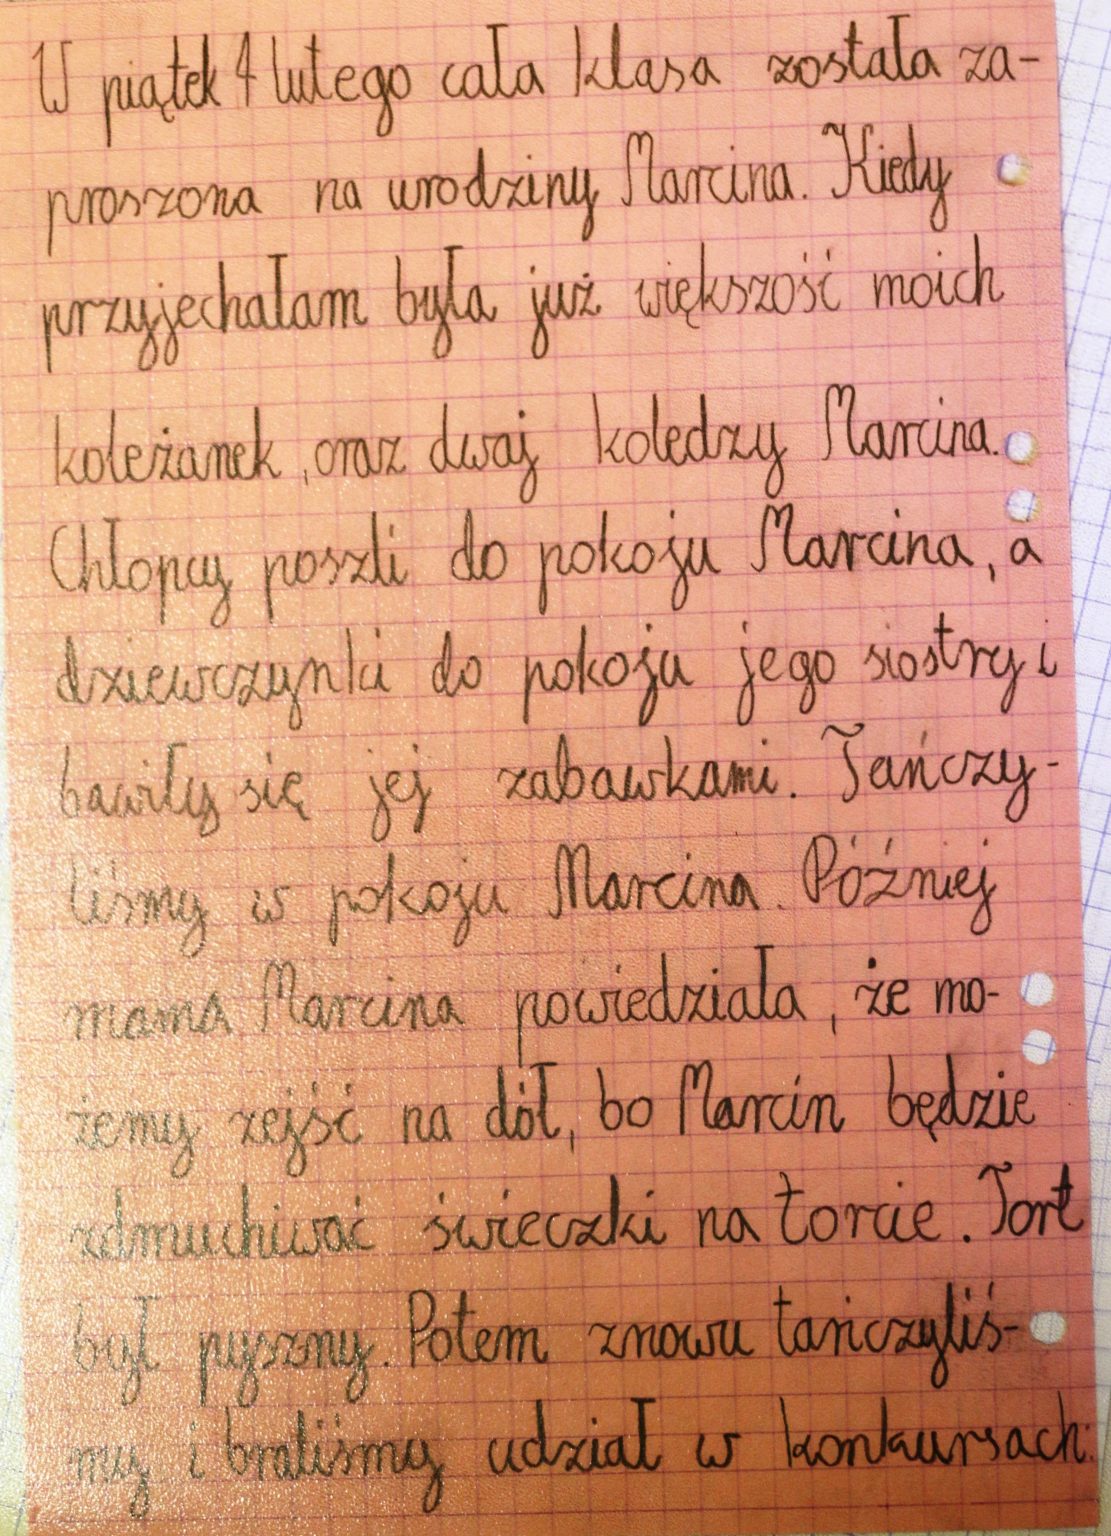 W piątek 4 lutego cała klasa została za-
proszona na urodziny Marcina. Kiedy
przyjechałam była już większość moich
koleżanek, oraz dwaj koledzy Marcina.
Chłopcy poszli do pokoju Marcina, a
dziewczynki do pokoju jego siostry i
bawiły się jej zabawkami. Tańczy-
liśmy w pokoju Marcina. Później
mama Marcina powiedziała, że mo-
żemy zejść na dół, bo Marcin będzie
zdmuchiwać świeczki na torcie. Tort
był pyszny. Potem znowu tańczyliś-
my i braliśmy udział w konkursach: